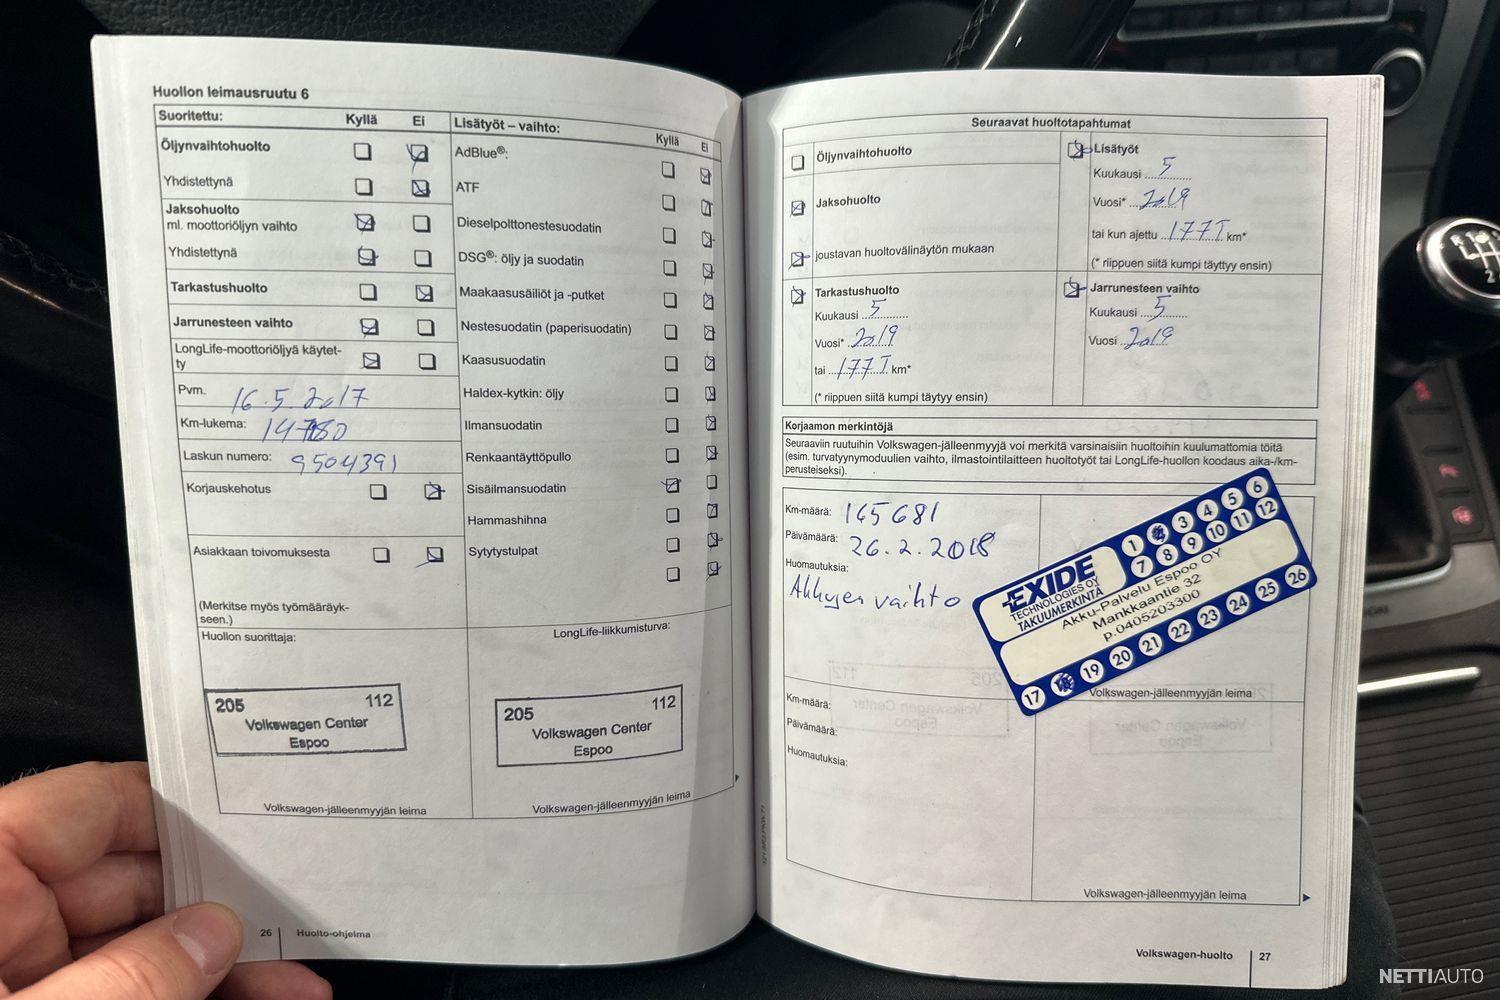 Huollon leimausruutu 6
Suoritettu: Kyllä Ei
Öljynvaihtohuolto
Yhdistettynä
Jaksohuolto
ml. moottoriöljyn vaihto
Yhdistettynä
Tarkastushuolto
Jarrunesteen vaihto
LongLife-moottoriöljyä käytet-
ty
Pvm. 16.5.2017
Km-lukema:
Laskun numero: 9504391
Korjauskehotus
Asiakkaan toivomuksesta
(Merkitse myös työmääräyk-
seen.)
Huollon suorittaja:
205 112
Volkswagen Center
Espoo
Volkswagen-jälleenmyyjän leima
Lisätyöt – vaihto: Kyllä Ei
AdBlue®:
ATF
Dieselpolttonestesuodatin
DSG®: öljy ja suodatin
Maakaasusäiliöt ja -putket
Nestesuodatin (paperisuodatin)
Kaasusuodatin
Haldex-kytkin: öljy
Ilmansuodatin
Renkaantäyttöpullo
Sisäilmansuodatin
Hammashihna
Sytytystulpat
LongLife-liikkumisturva:
205 112
Volkswagen Center
Espoo
Volkswagen-jälleenmyyjän leima
26 Huolto-ohjelma
Seuraavat huoltotapahtumat
Öljynvaihtohuolto
Jaksohuolto
joustavan huoltovälinäytön mukaan
Lisätyöt
Kuukausi 5
Vuosi* 2019
tai kun ajettu 177T km*
(* riippuen siitä kumpi täyttyy ensin)
Tarkastushuolto
Kuukausi 5
Vuosi* 2019
tai 177T km*
(* riippuen siitä kumpi täytyy ensin)
Jarrunesteen vaihto
Kuukausi 5
Vuosi 2019
Korjaamon merkintöjä
Seuraaviin ruutuihin Volkswagen-jälleenmyyjä voi merkitä varsinaisiin huoltoihin kuulumattomia töitä
(esim. turvatyynymoduulien vaihto, ilmastointilaitteen huoltotyöt tai LongLife-huollon koodaus aika-/km-
perusteiseksi).
Km-määrä: 165681
Päivämäärä: 26.2.2018
Huomautuksia:
Akkujen vaihto
EXIDE
TECHNOLOGIES OY
TAKUUMERKINTÄ
1 3 4 5 6
7 8 9 10 11 12
Akku-Palvelu Espoo OY
Mankkaantie 32
p.0405203300
17 18 19 20 21 22 23 24 25 26
Volkswagen-jälleenmyyjän leima
Km-määrä:
Päivämäärä:
Huomautuksia:
Volkswagen-jälleenmyyjän leima
Volkswagen-huolto 27
NETTIAUTO